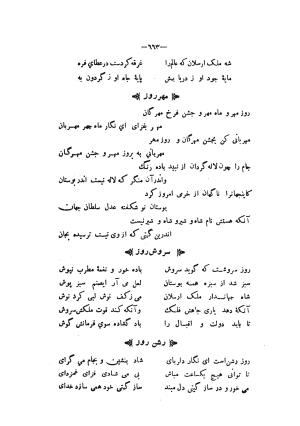 —۶۶۳—
شه ملک ارسلان که عالم را غرقه کردست در عطای فره
مایهٔ جود او ز دریا بیش پایهٔ جاه او ز گردون به
مهر روز
روز مهر و ماه مهر و جشن فرخ مهرگان
مهر بفزای ای نگار ماه چهر مهربان
مهربانی کن بجشن مهرگان و روز مهر
مهربانی به بروز مهر و جشن مهرگان
جام را چون لاله گردان از نبید باده رنگ
وندر آن منگر که لاله نیست اندر بوستان
کاینجهانرا ناگهان از خرمی امروز کرد
بوستان نو شکفته عدل سلطان جهان
آنکه هستش نام شاه و شیر و شاه و شیر نیست
اندرین گیتی که از وی نیست ترسیده بجان
سروش روز
روز سروشست که گوید سروش باده خور و نغمهٔ مطرب نیوش
سبز شد از سبزه همه بوستان لعل می آر ایصنم سبز پوش
شاه جهاندار ملک ارسلان می ز کف نوش لبی کرد نوش
آنکهٔ دهد یاری جاهش فلک وآنکه کند قوت ملکش
تا باید دولت و اقبال را باد گشاده سوی فرمانش گوش
رشن روز
روز رشن است ای نگار دلربای شاد بنشین و بجام می گرای
تا توانی هیچ یکساعت مباش بی می شادی فزای غمزدای
می خور و در ساز گیتی دل مبند ساز گیتی خود همی سازد خدای